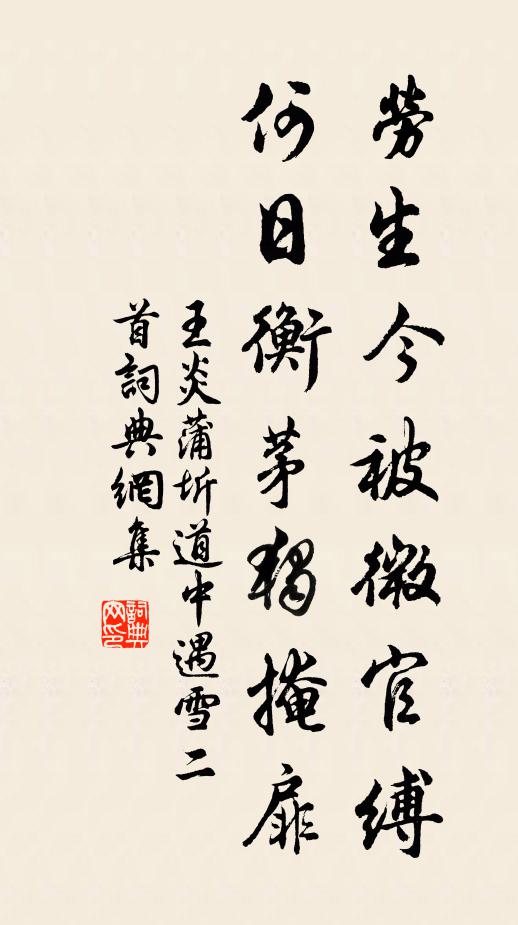 勞生今被微官縛
何日衡茅獨掩扉
王炎蒲圻道中遇雪二
首詞典網集
詞典
网印